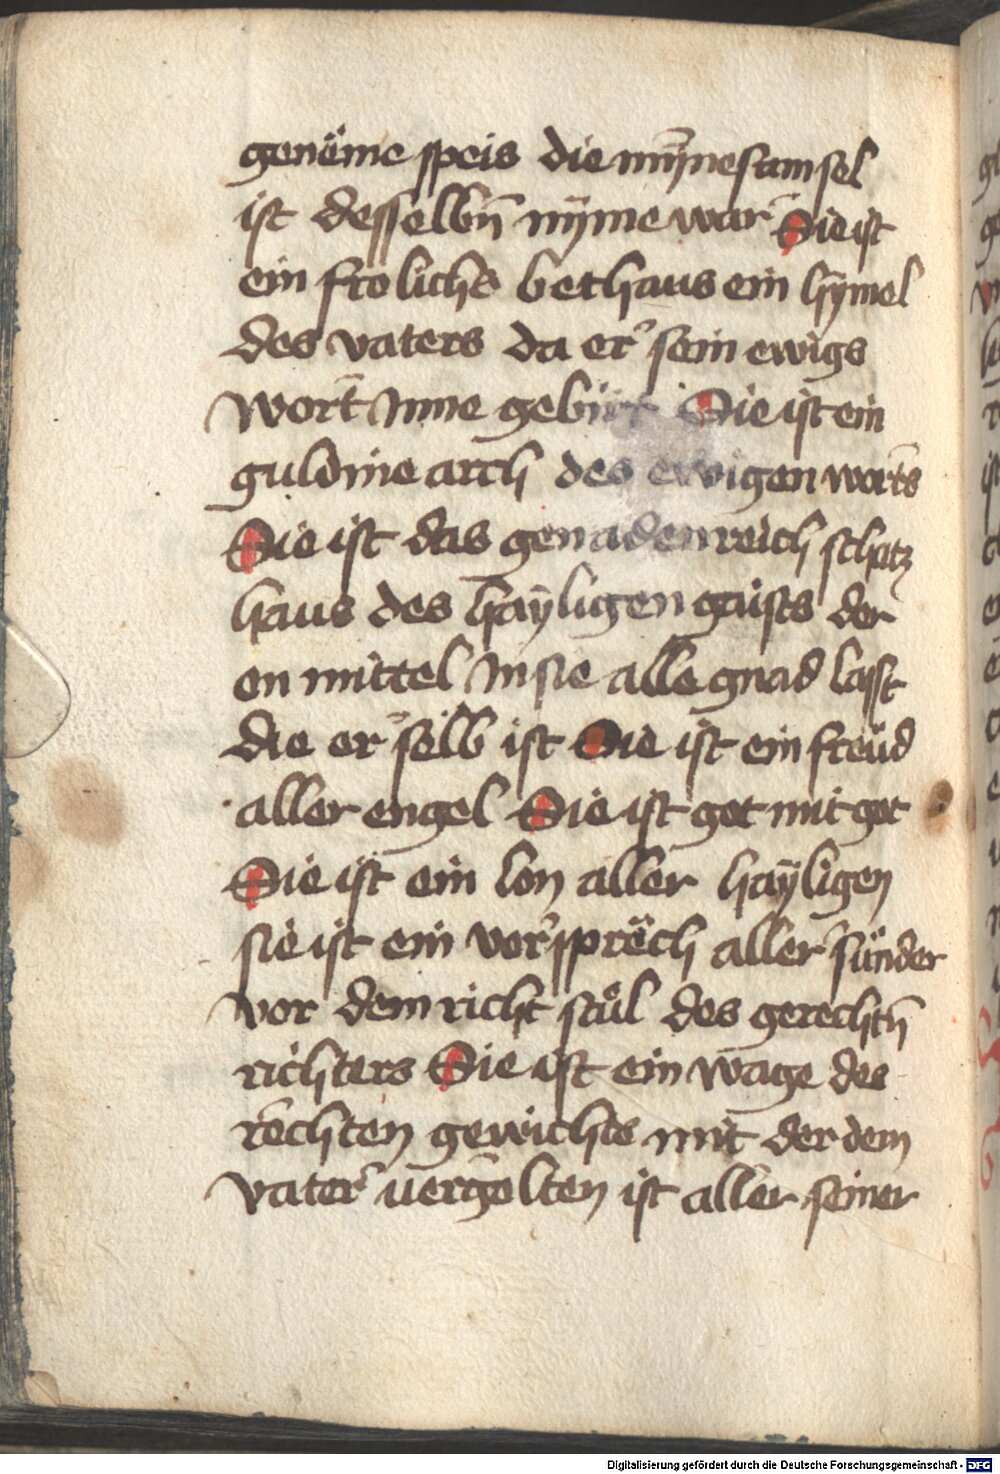 genëme speis die mỹnesam sel
ist desselbñ nỹme war Sie ist
ein frolichs bethaus ein hÿmel
des vaters da er sein ewigs
wort Inne gebirt Sie ist ein
guldine arch des ewigen worts
Sie ist das genadenreich schatz
haus des haÿligen gaists der
on mittel In sie alle gnad lasst
die er selb ist Sie ist ein freüd
aller engel Sie ist got mit got
Sie ist ein lon aller haÿligen
sie ist ein vorsprëch aller sünder
vor dem richt stůl des gerechtñ
richters Sie ist ein wage des
rechten gewichts mit der dem
vater vergolten ist aller seiner
Digitalisierung gefördert durch die Deutsche Forschungsgemeinschaft - DFG